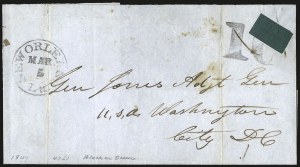 NEW ORLEANS
MAR
5
LA
Gen Jones Adjt Gen
U.S.A Washington
City D.C